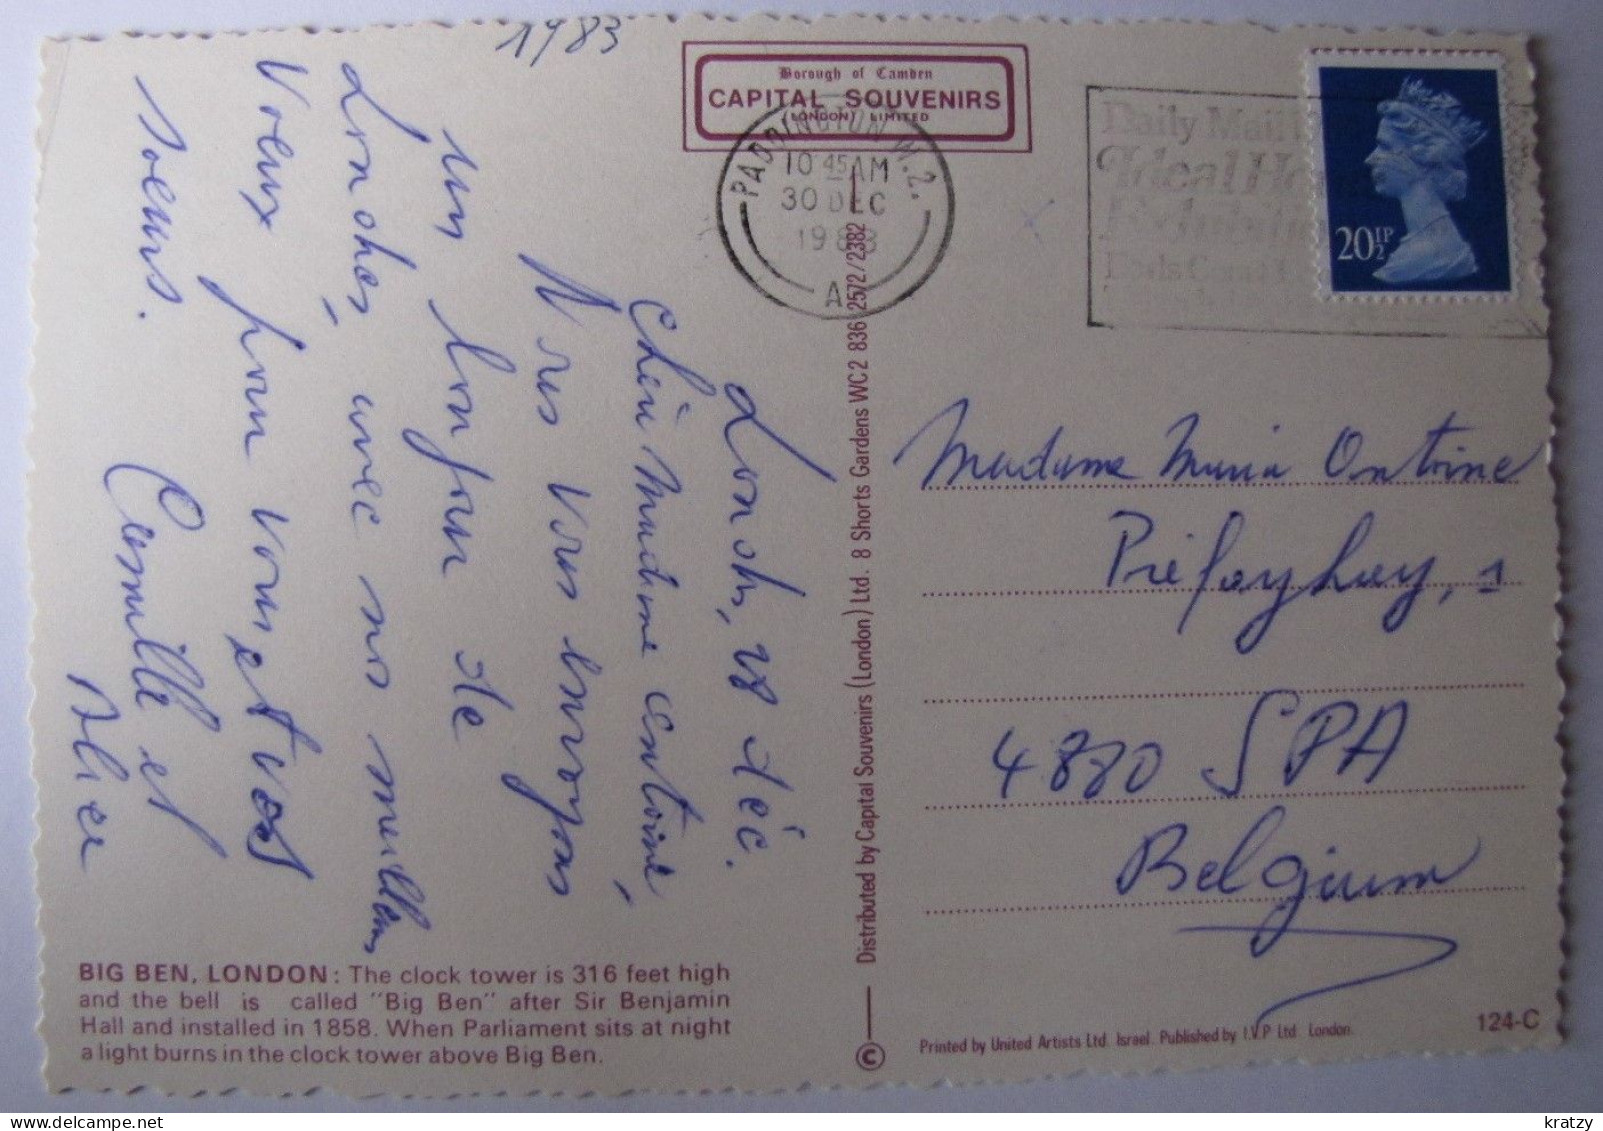 1983
Borough of Camden
CAPITAL SOUVENIRS
(LONDON) LIMITED
PADDINGTON W.2.
10 45 AM
30 DEC
1983
A
Daily Mail
Ideal Ho
20½P
Londres, 28 déc.
Chère Madame Antoine,
Nous vous envoyons
un bonjour de
Londres, avec nos meilleurs
Voeux pour vous et vos
soeurs.
Camille et
Madame Maria Antoine
Préfayhay, 1
4880 SPA
Belgium
BIG BEN, LONDON: The clock tower is 316 feet high
and the bell is called "Big Ben" after Sir Benjamin
Hall and installed in 1858. When Parliament sits at night
a light burns in the clock tower above Big Ben.
© Distributed by Capital Souvenirs (London) Ltd. 8 Shorts Gardens WC2 836 2572/2382
Printed by United Artists Ltd. Israel. Published by I.V.P Ltd London.
124-C
kratzy